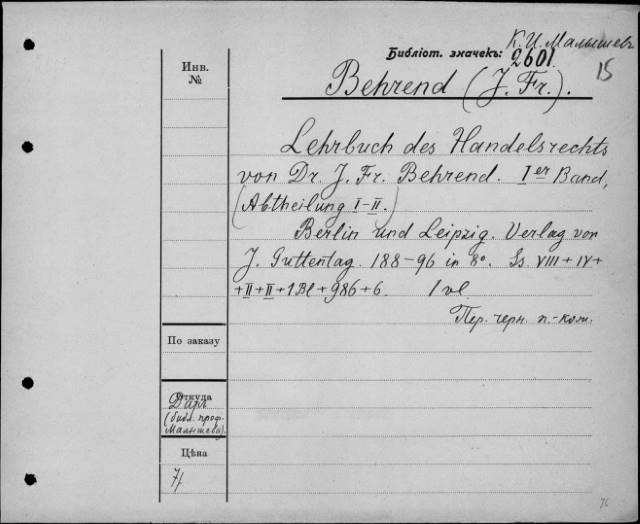 К. И. Малышевъ
Библіот. значекъ: 2601
15
Инв.
№
Behrend (J. Fr.).
Lehrbuch des Handelsrechts
von Dr. J. Fr. Behrend. I er Band,
(Abtheilung I-II.)
Berlin und Leipzig. Verlag von
J. Guttentag. 188-96 in 8°. Ss. VIII + IV +
+ II + II + 1 Bl + 986 + 6. 1 vl.
Пер. черн. п.-кож.
По заказу
Откуда
Даръ
(библ. проф.
Малышева).
Цѣна
76